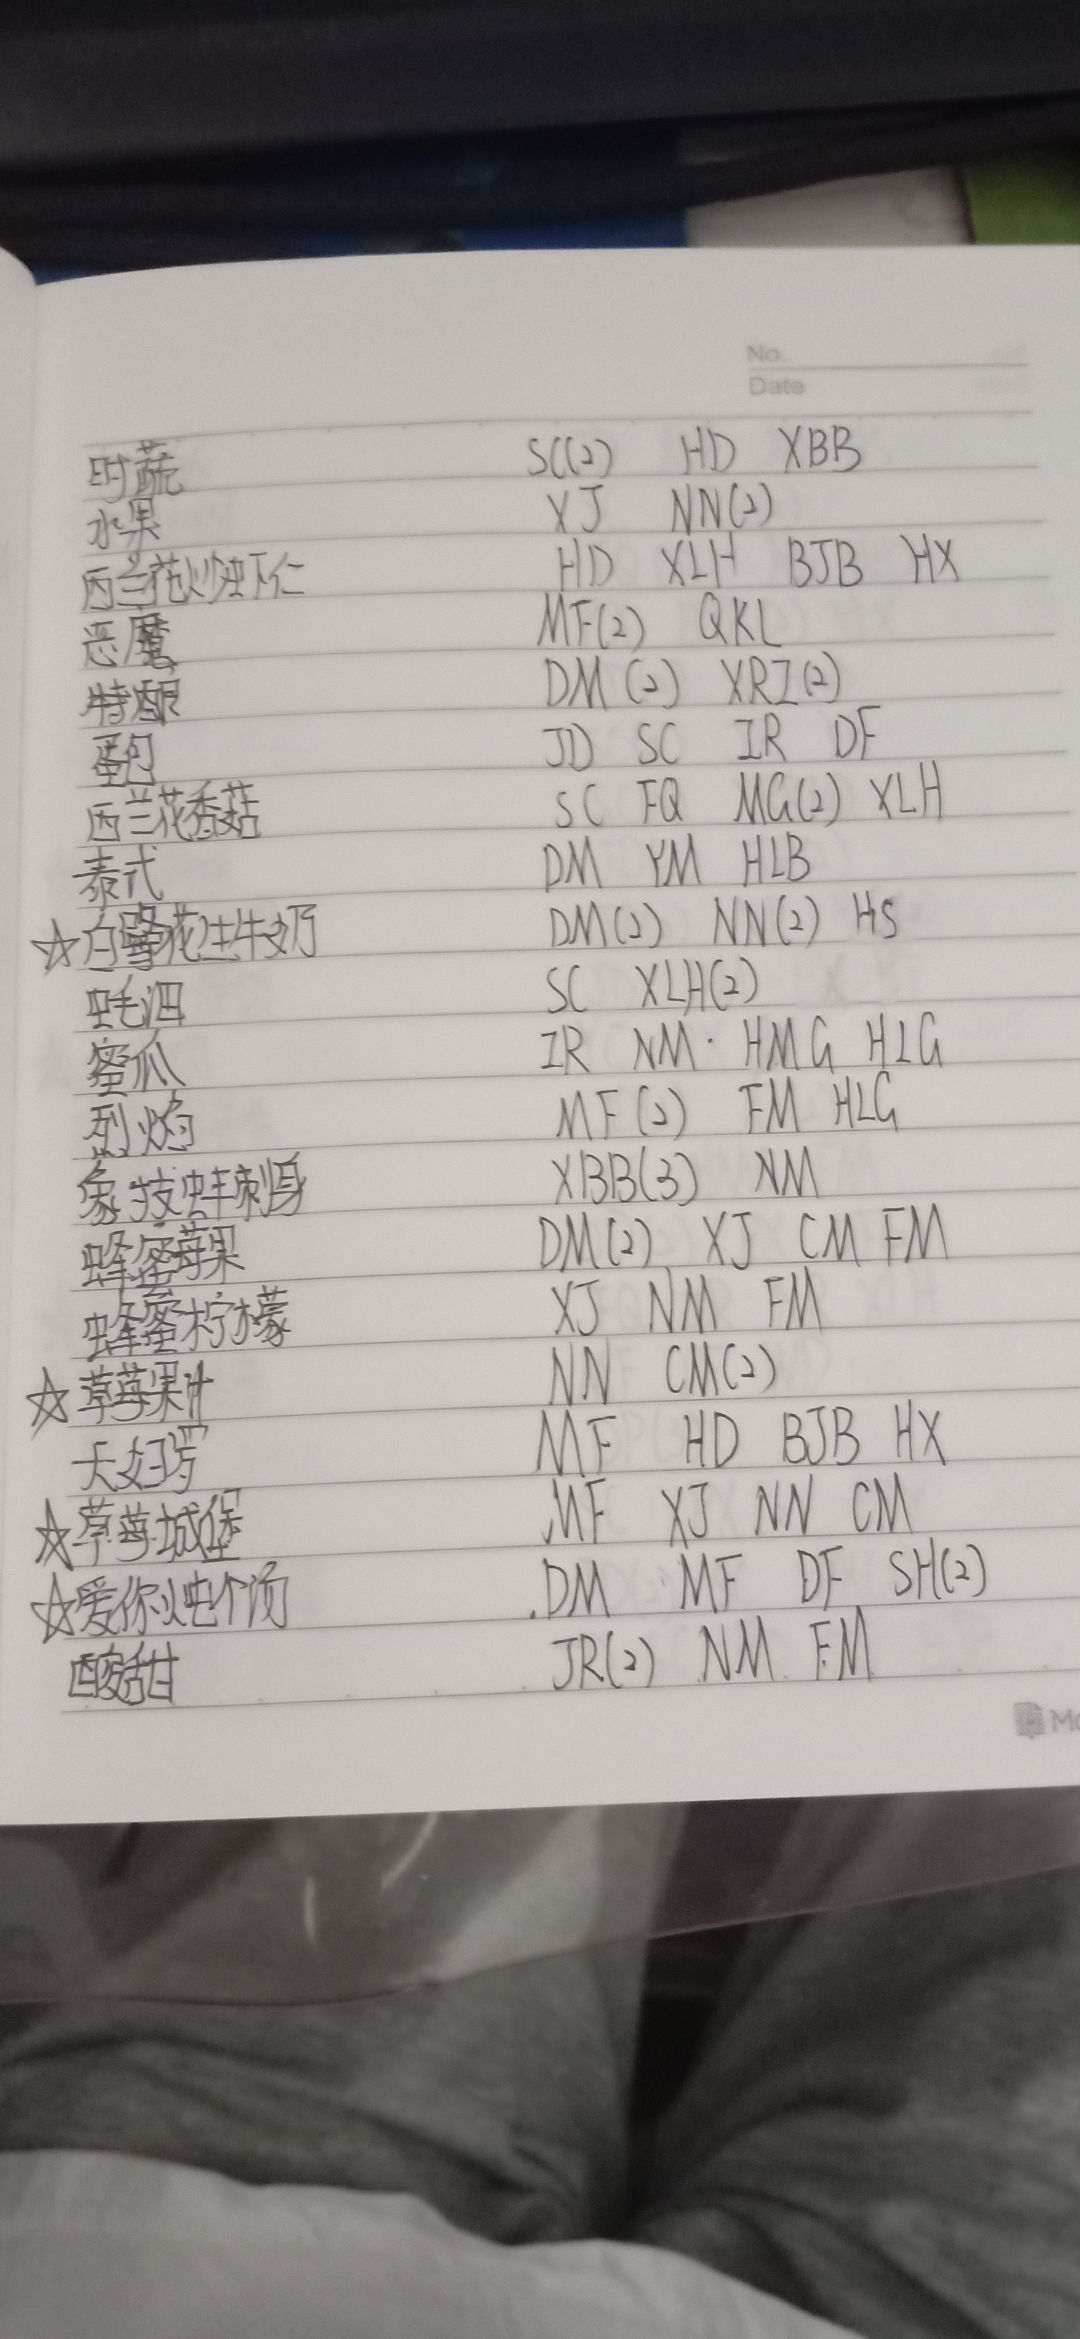 No.
Date
时蔬 SC(2) HD XBB
水果 XJ NN(2)
西兰花炒虾仁 HD XLH BJB HX
恶魔 MF(2) QKL
特酿 DM(2) XRZ(2)
蛋包 JD SC IR DF
西兰花香菇 SC FQ MG(2) XLH
泰式 DM YM HLB
☆白雪花生牛奶 DM(2) NN(2) HS
SC XLH(2)
蜜瓜 IR NM HMG HLG
烈焰 MF(2) FM HLG
象拔蚌刺身 XBB(3) NM
蜂蜜莓果 DM(2) XJ CM FM
蜂蜜柠檬 XJ NM FM
☆草莓果汁 NN CM(2)
天妇罗 MF HD BJB HX
☆草莓城堡 MF XJ NN CM
☆爱你炖个汤 DM MF DF SH(2)
酸甜 JR(2) NM FM